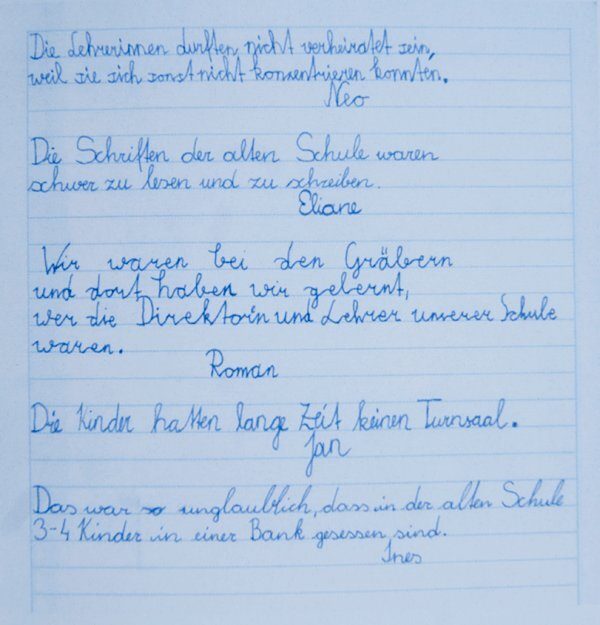 Die Lehrerinnen durften nicht verheiratet sein,
weil sie sich sonst nicht konzentrieren konnten.
Neo
Die Schriften der alten Schule waren
schwer zu lesen und zu schreiben.
Eliane
Wir waren bei den Gräbern
und dort haben wir gelernt,
wer die Direktorin und Lehrer unserer Schule
waren.
Roman
Die Kinder hatten lange Zeit keinen Turnsaal.
Jan
Das war so unglaublich, dass in der alten Schule
3-4 Kinder in einer Bank gesessen sind.
Ines